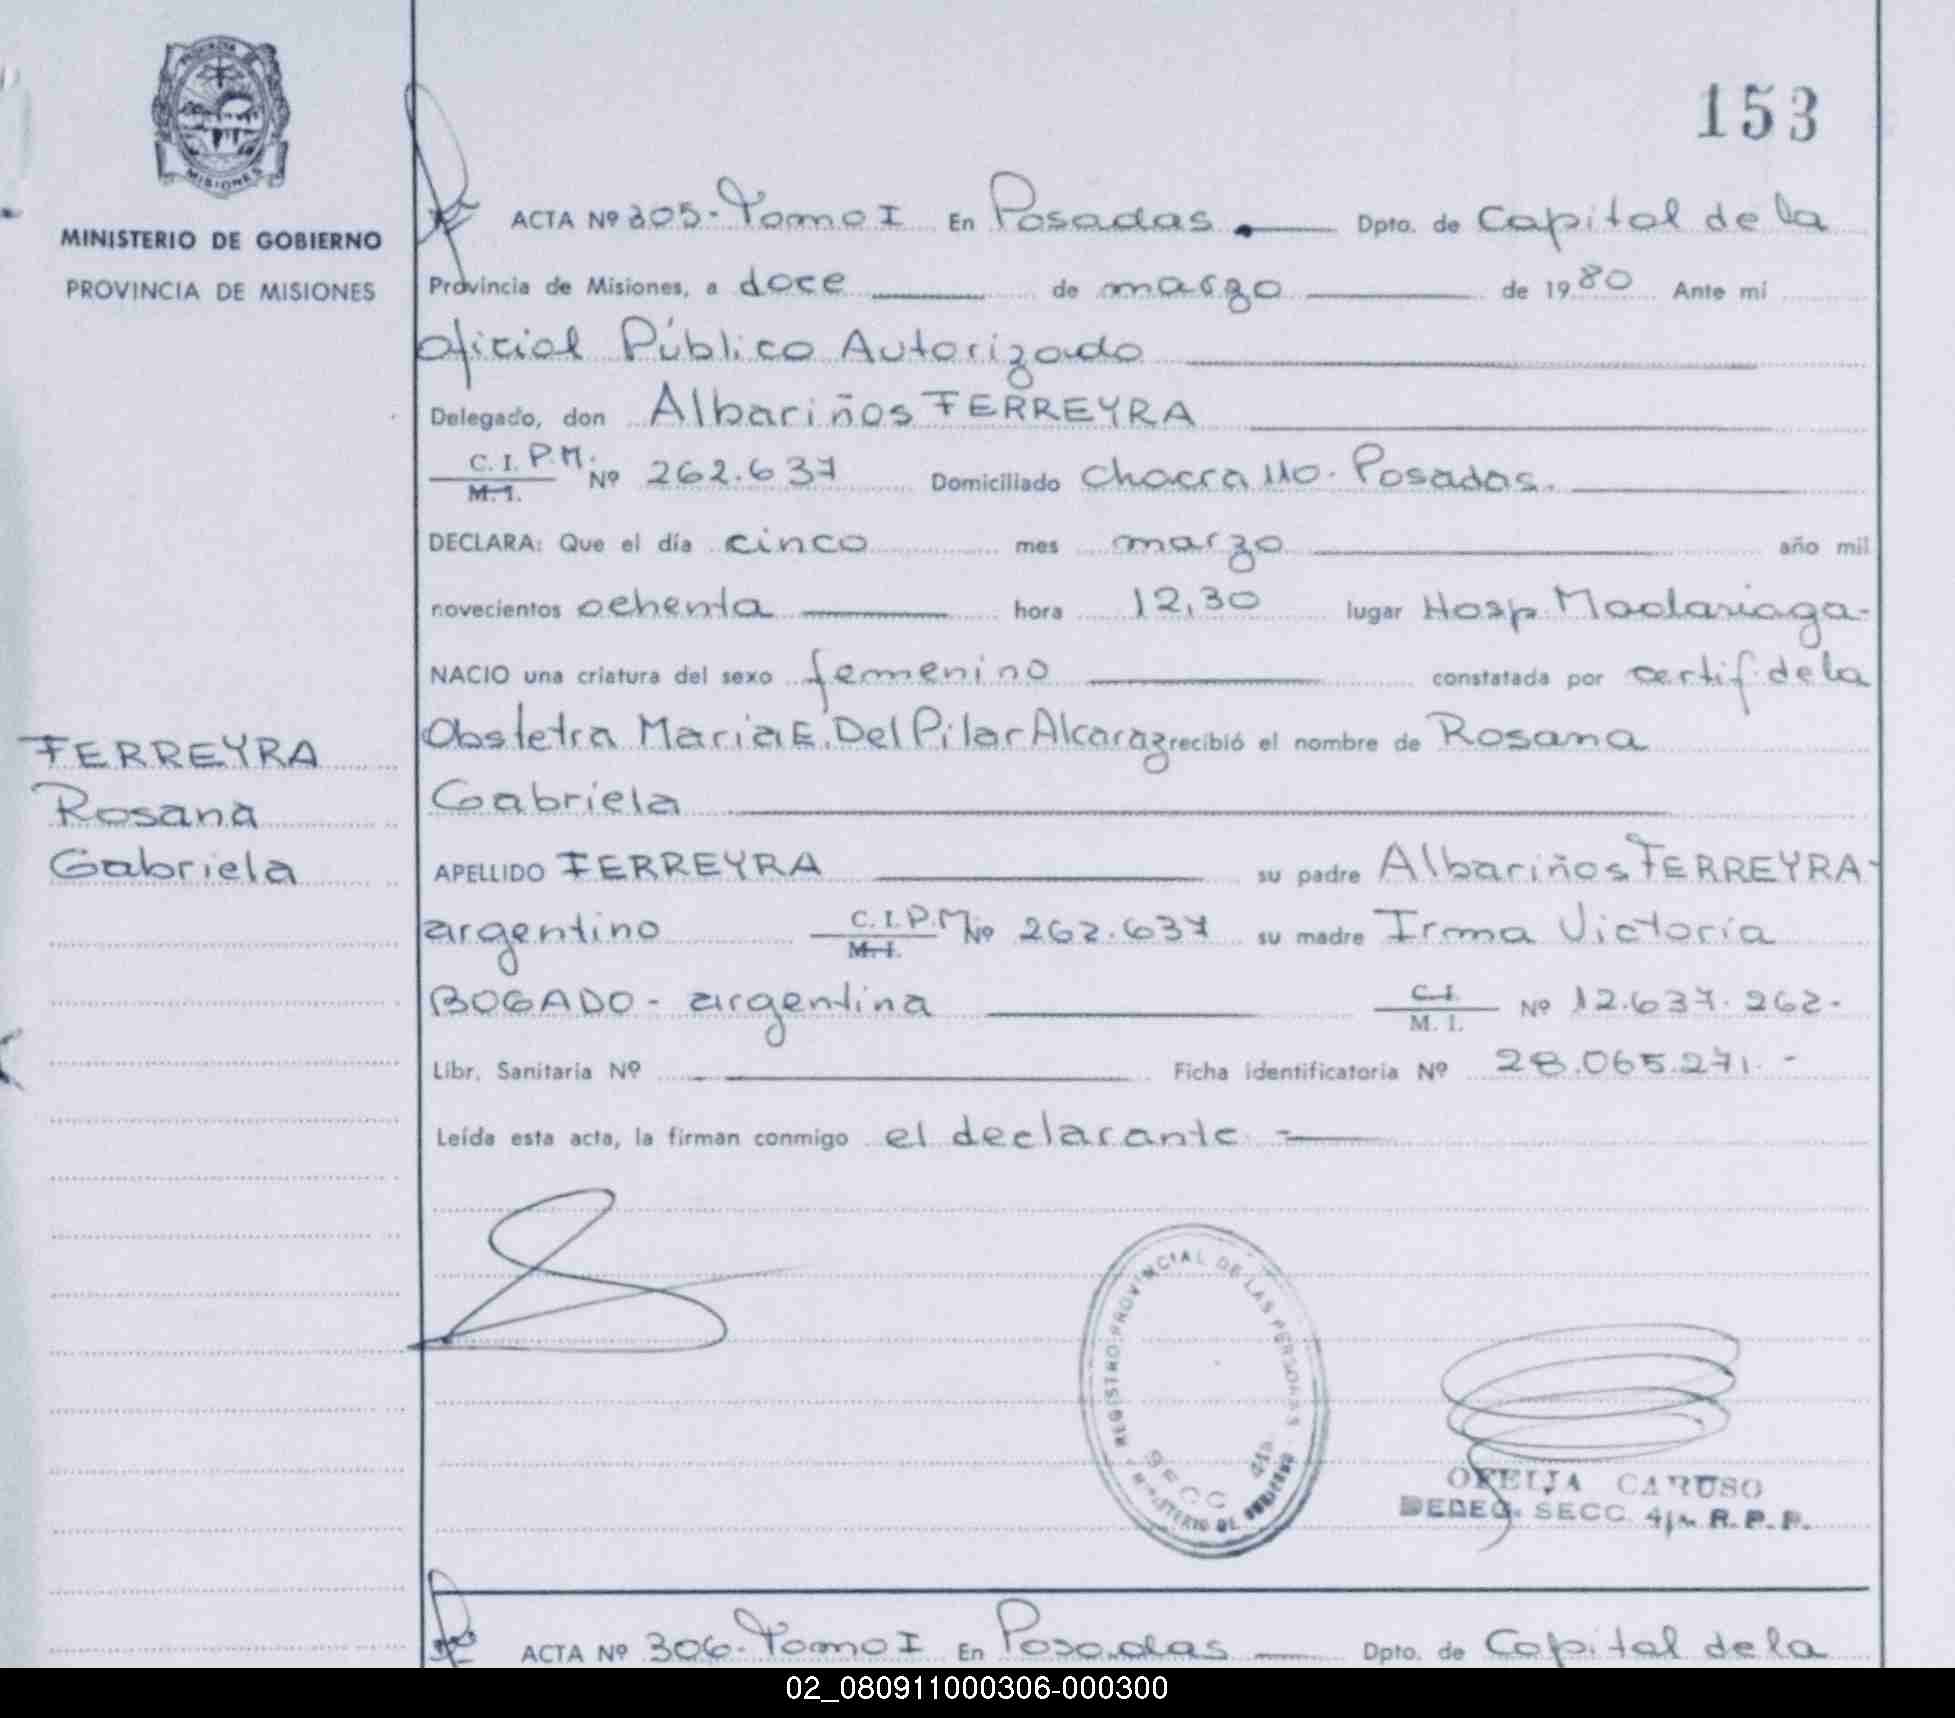 153
PROVINCIA DE
MISIONES
MINISTERIO DE GOBIERNO
PROVINCIA DE MISIONES
ACTA Nº 305 - Tomo I En Posadas. Dpto. de Capital de la
Provincia de Misiones, a doce de marzo de 1980 Ante mi
Oficial Público Autorizado
Delegado, don Albariños FERREYRA
C. I. P.M. M. I. Nº 262.637 Domiciliado Chacra 110. Posadas.
DECLARA: Que el día cinco mes marzo año mil
novecientos ochenta hora 12,30 lugar Hosp. Madariaga-
NACIO una criatura del sexo femenino constatada por certif. de la
Obstetra Maria E. Del Pilar Alcaraz recibió el nombre de Rosana
Gabriela
FERREYRA
Rosana
Gabriela
APELLIDO FERREYRA su padre Albariños FERREYRA-
argentino C. I. P.M. M. I. Nº 262.637 su madre Irma Victoria
BOGADO - argentina C. I. M. I. Nº 12.637.262-
Libr. Sanitaria Nº Ficha identificatoria Nº 28.065.271.-
Leída esta acta, la firman conmigo el declarante -
REGISTRO PROVINCIAL DE LAS PERSONAS
SECC 4ta
MINISTERIO DE GOBIERNO
OFELIA CARUSO
DELEG. SECC. 4ta R. P. P.
ACTA Nº 306 - Tomo I En Posadas Dpto. de Capital de la
02_080911000306-000300